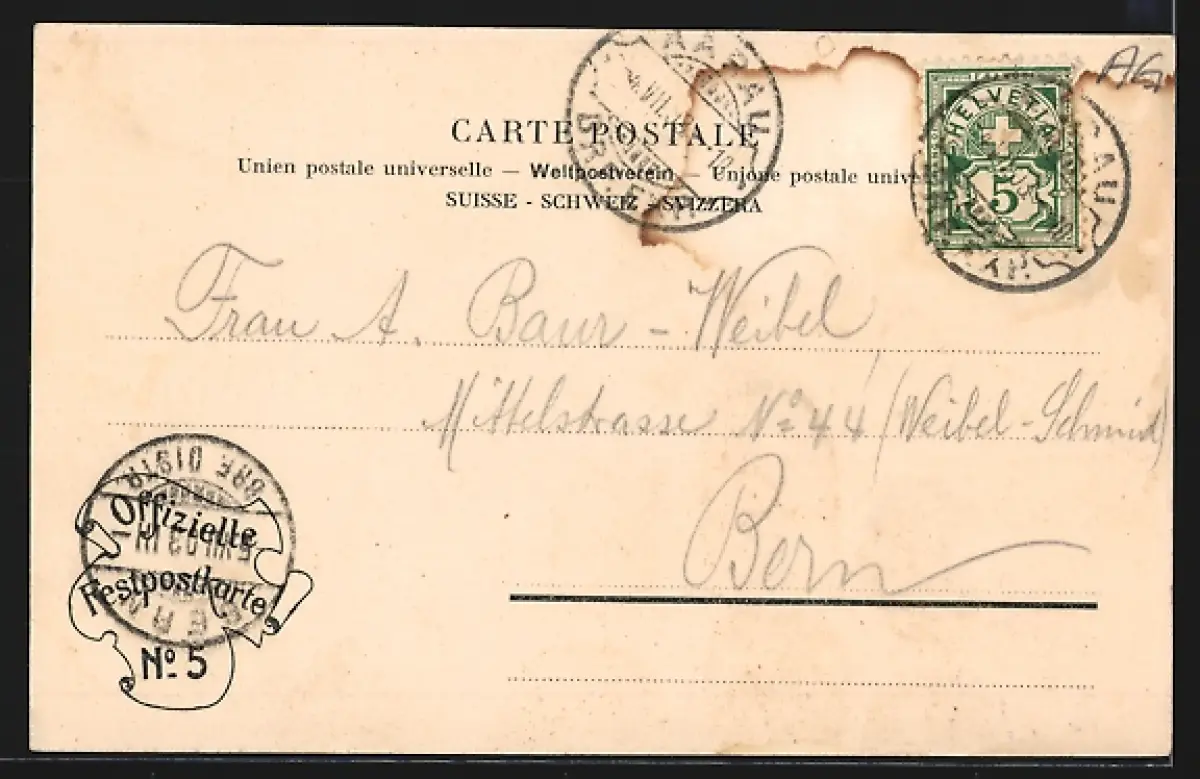 AG
AARAU
HELVETIA
5
CARTE POSTALE
Unien postale universelle — Weltpostverein — Unione postale
SUISSE - SCHWEIZ - SVIZZERA
Frau A. Baur - Weibel
Mittelstrasse No 44 (Weibel-Schmid)
Bern
BRF. DISTR.
BERN
Offizielle
Festpostkarte
No 5